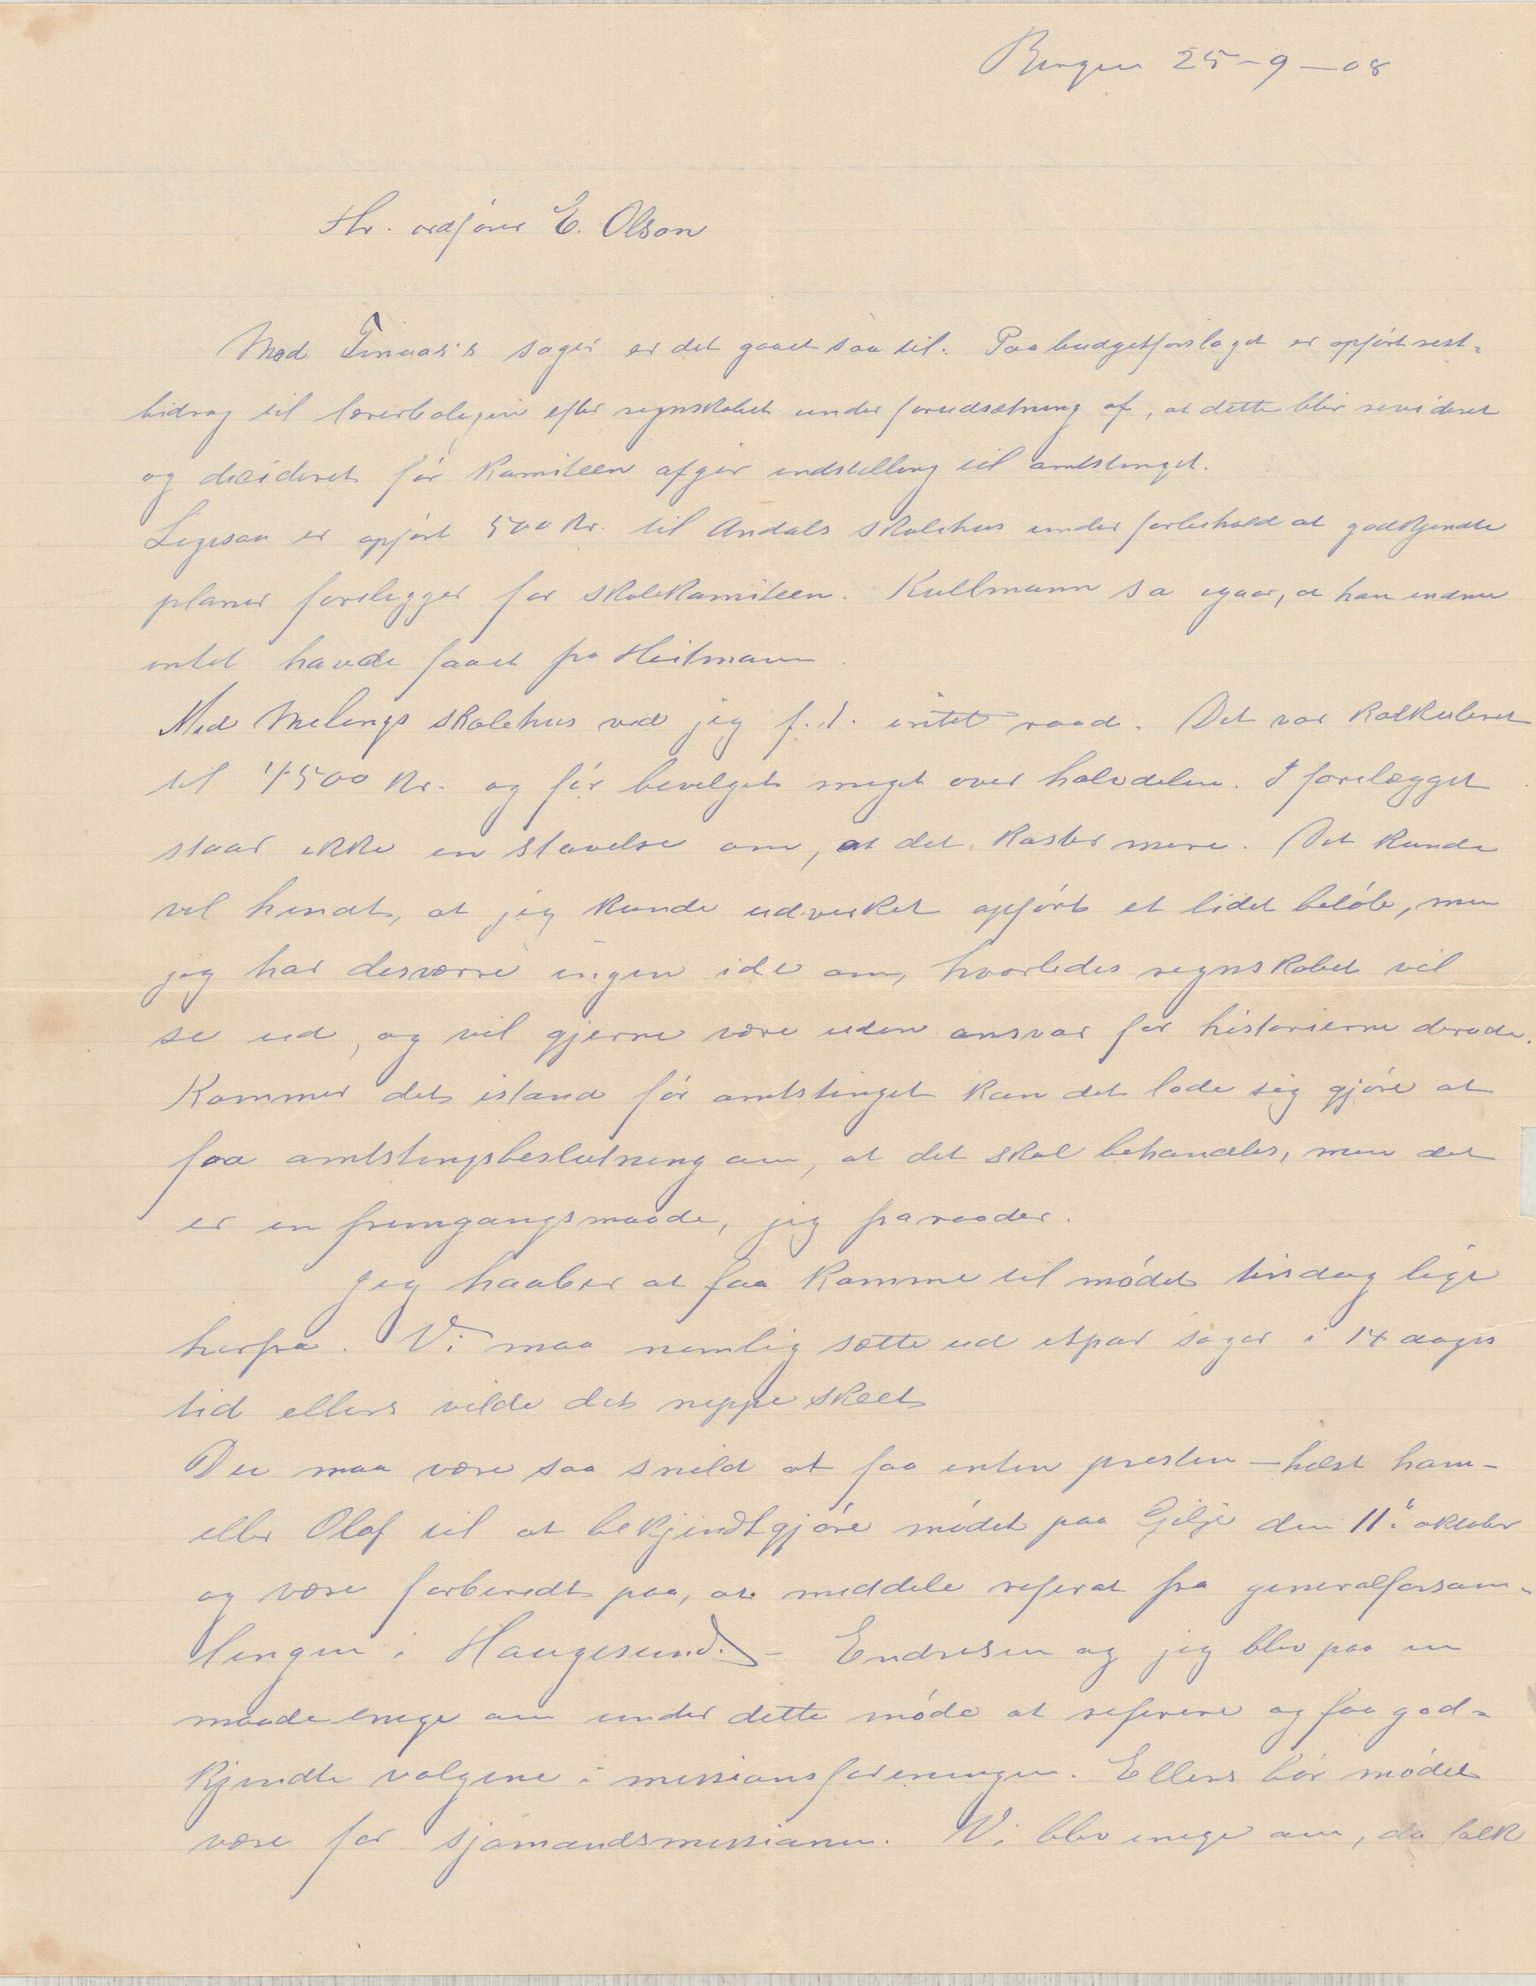 Bergen 25-9-08
Hr. ordfører E. Olson
Med Finaas's sager er det gaaet saa til. Paa budgetforslaget er opført rest-
bidrag til lærerboligen efter regnskabet under forudsætning af, at dette blir revideret
og decideret før komiteen afgir indstilling til amtstinget.
Ligesaa er opført 500 kr. til Andals skolehus under forbehold at godkjendte
planer forelegges for skolekomiteen. Kullmann sa igaar, at han endnu
intet havde faaet fra Heitmann.
Med Melings skolehus ved jeg f. t. intet raad. Det var kalkuleret
til 4500 kr. og før bevilget meget over halvdelen. I forelægget
staar ikke en stavelse om, at det koster mere. Det kunde
vel hendt, at jeg kunde udvirket opført et lidet beløb, men
jeg har desværre ingen ide om, hvorledes regnskabet vil
se ud, og vil gjerne være uden ansvar for historierne derude.
Kommer det istand før amtstinget kan det lade sig gjøre at
faa amtstingsbeslutning om, at det skal behandles, men det
er en fremgangsmaade, jeg fraraader.
Jeg haaber at faa komme til mødet tirsdag lige
herfra. Vi maa nemlig sætte ud etpar sager i 14 dages
tid ellers vilde det neppe skeet
Du maa være saa snild at faa enten presten - helst ham -
eller Olaf til at bekjendtgjøre mødet paa Gilje den 11. oktober
og være forberedt paa, at meddele referat fra generalforsam-
lingen i Haugesund. - Endresen og jeg blev paa en
maade enige om under dette møde at referere og faa god-
kjendte valgene i missionsforeningen. Ellers bør mødet
være for sjømandsmissionen. Vi blev enige om, da folk